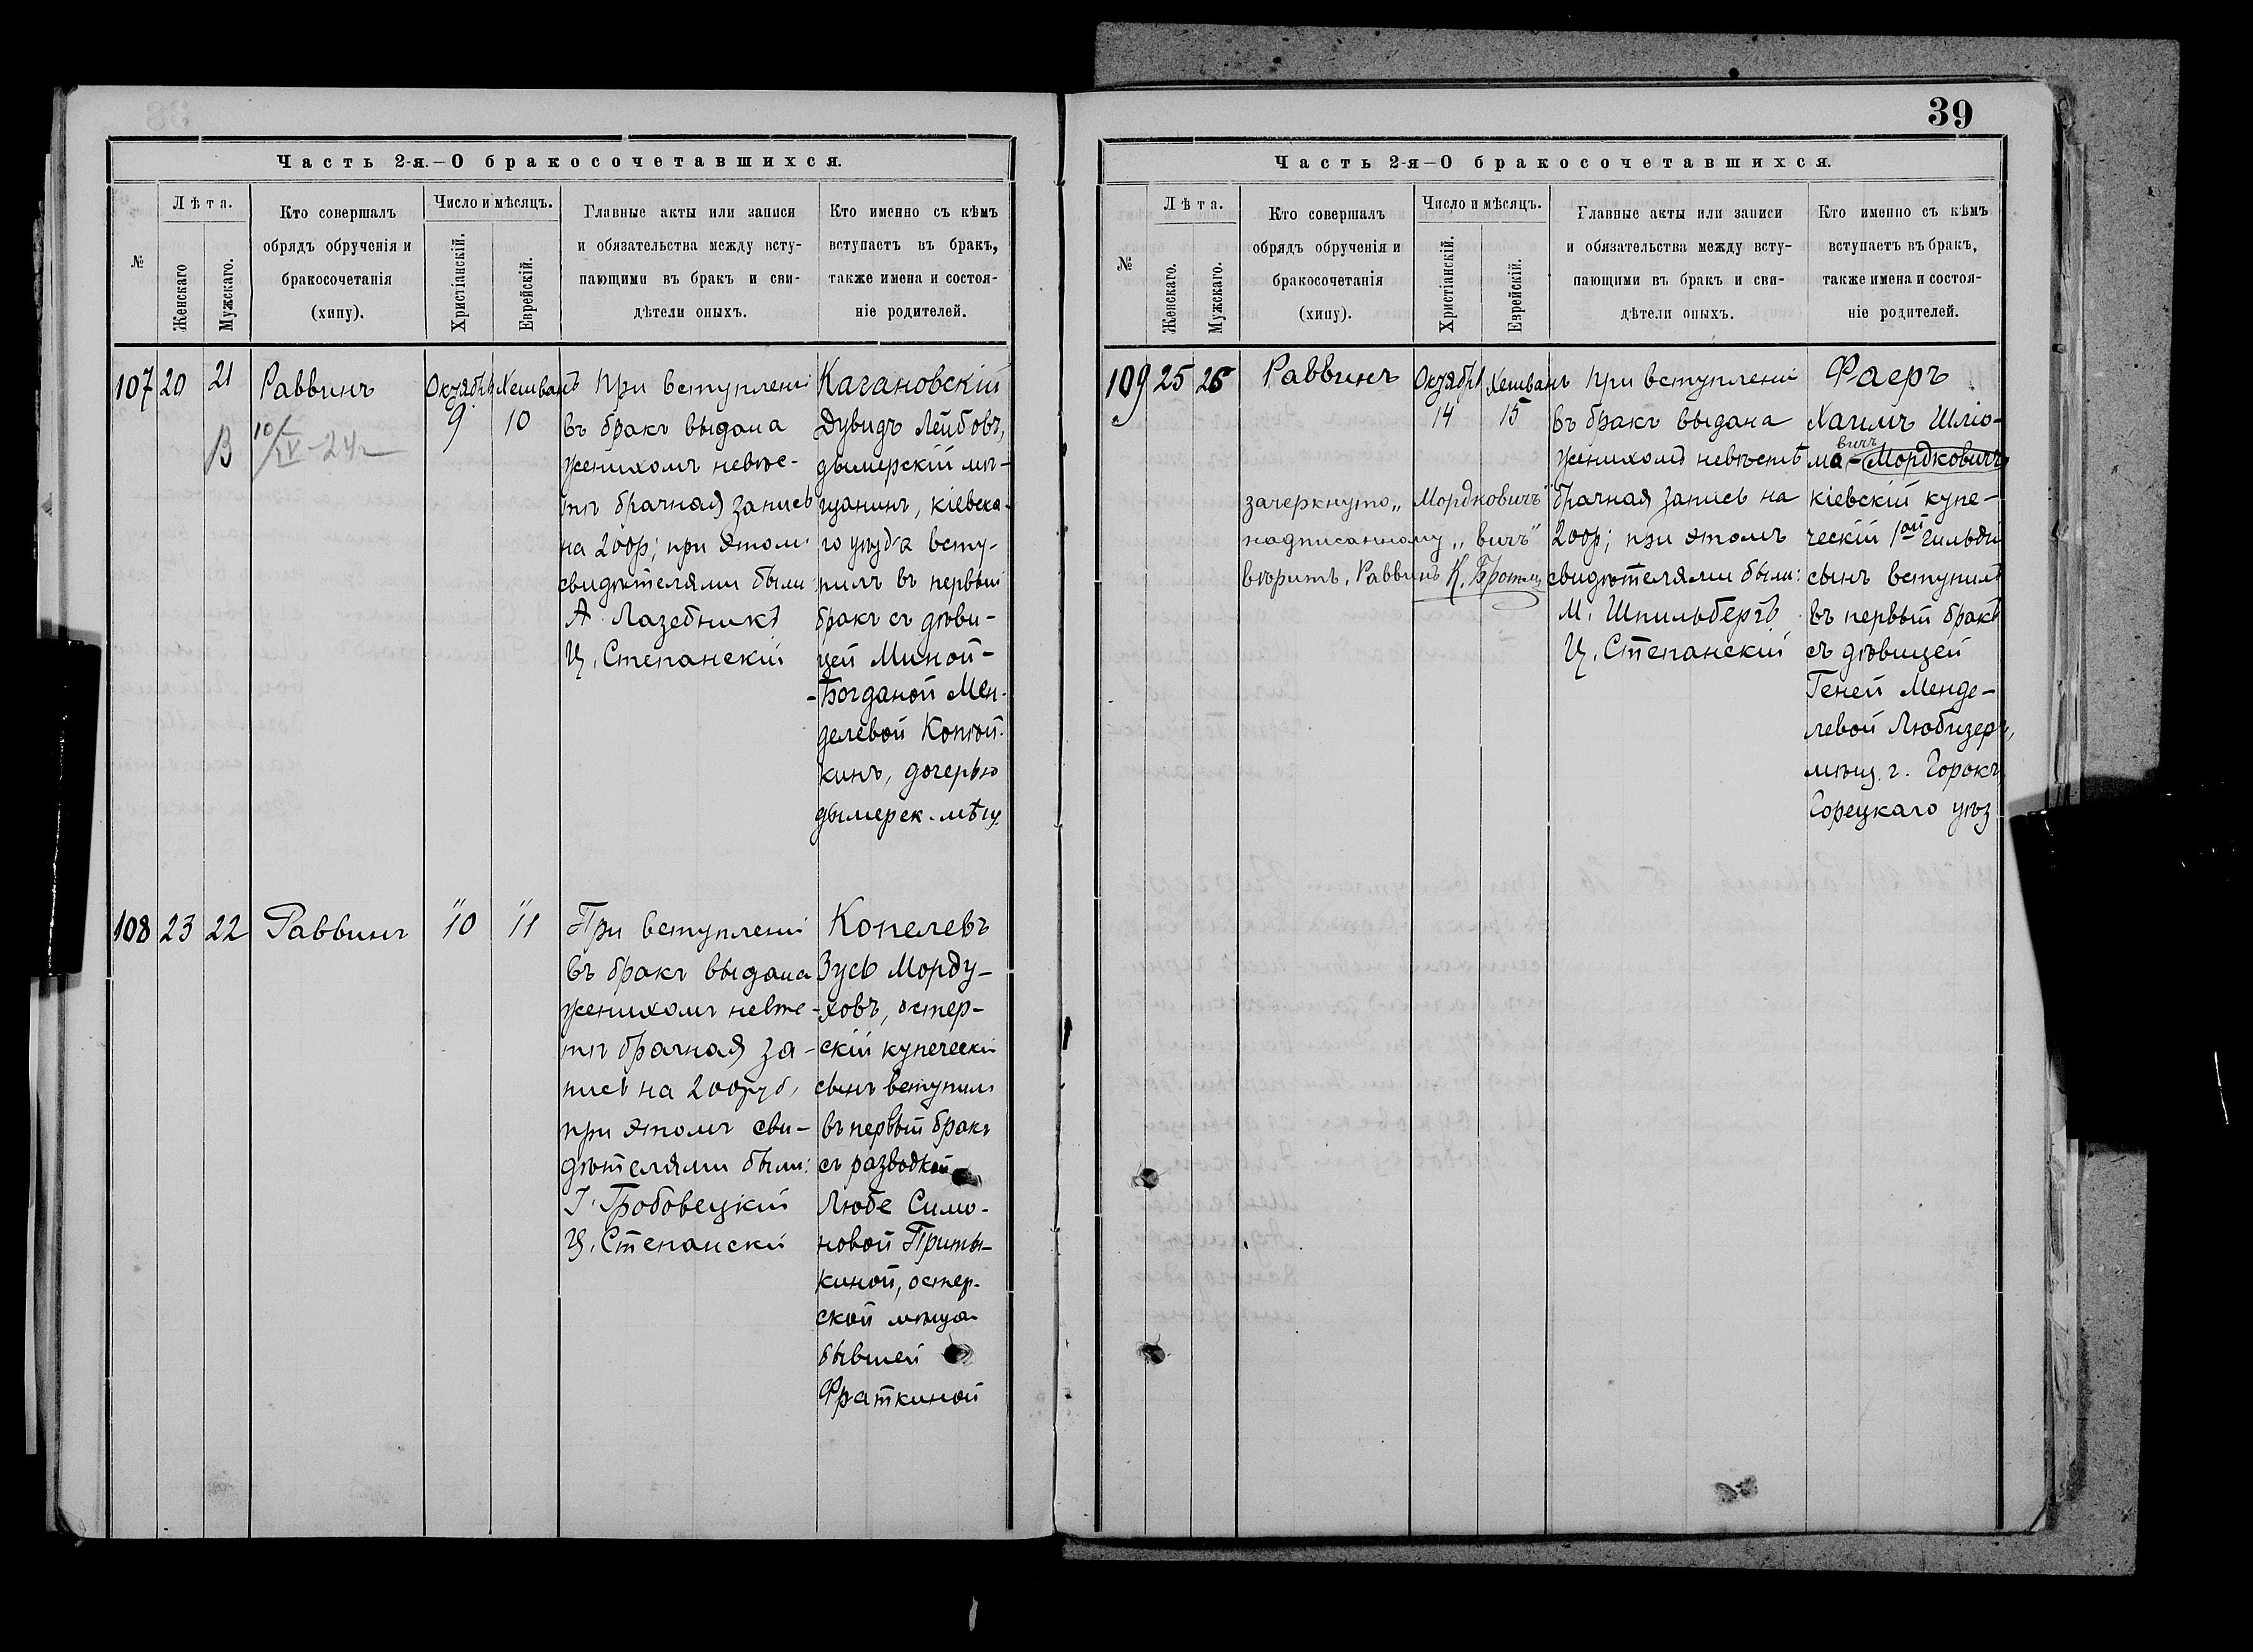 Часть 2-я.—О бракосочетавшихся.
№
Лѣта.
Женскаго
Мужскаго.
Кто совершалъ
обрядъ обрученія и
бракосочетанія
(хипу).
Число и мѣсяцъ.
Христіанскій.
Еврейскій.
Главные акты или записи
и обязательства между всту-
пающими въ бракъ и сви-
дѣтели оныхъ.
Кто именно съ кѣмъ
вступаетъ въ бракъ,
также имена и состоя-
ніе родителей.
107
20
21
В
Раввинъ
10/IV-24г
Октябрь
9
Хешванъ
10
При вступлені
въ бракъ выдана
женихомъ невѣс-
тѣ брачная запись
на 200р; при этомъ
свидѣтелями были:
А. Лазебникъ
Ц. Степанскій
Кагановскій
Дувидъ Лейбовъ,
дымерскій мѣ-
щанинъ, кіевска-
го уѣзда всту-
пилъ въ первый
бракъ съ дѣви-
цей Миной-
-Богданой Мен-
делевой Коптой-
кинъ, дочерью
дымерск. мѣщ.
108
23
22
Раввинъ
" 10
" 11
При вступлені
въ бракъ выдана
женихомъ невѣс-
тѣ брачная за-
пись на 200руб,
при этомъ сви-
дѣтелями были:
Г. Гробовецкій
Ц. Степанскі
Копелевъ
Зусь Морду-
ховъ, остер-
скій купечески
сынъ вступилъ
въ первый бракъ
съ разводкой
Любе Симо-
новой Приты-
киной, остер-
ской мѣща
бывшей
Фраткиной
39
Часть 2-я—О бракосочетавшихся.
№
Лѣта.
Женскаго.
Мужскаго.
Кто совершалъ
обрядъ обрученія и
бракосочетанія
(хипу).
Число и мѣсяцъ.
Христіанскій.
Еврейскій.
Главные акты или записи
и обязательства между всту-
пающими въ бракъ и сви-
дѣтели оныхъ.
Кто именно съ кѣмъ
вступаетъ въ бракъ,
также имена и состоя-
ніе родителей.
109
25
26
Раввинъ
зачеркнуто „Мордковичъ"
надписанному „вичъ"
вѣрить. Раввинъ
Октябрь
14
Хешванъ
15
При вступлені
въ бракъ выдана
женихомъ невѣстѣ
брачная запись на
200р; при этомъ
свидѣтелями были:
М. Шпильбергъ
Ц. Степанскій
Фаеръ
Хаимъ Шліо-
вичъ
ма-Мордковичъ
кіевскій купе-
ческій 1ой гильдіи
сынъ вступилъ
въ первый бракъ
съ дѣвицей
Геней Менде-
левой Любизеръ,
мѣщ. г. Горокъ
Горецкаго уѣз